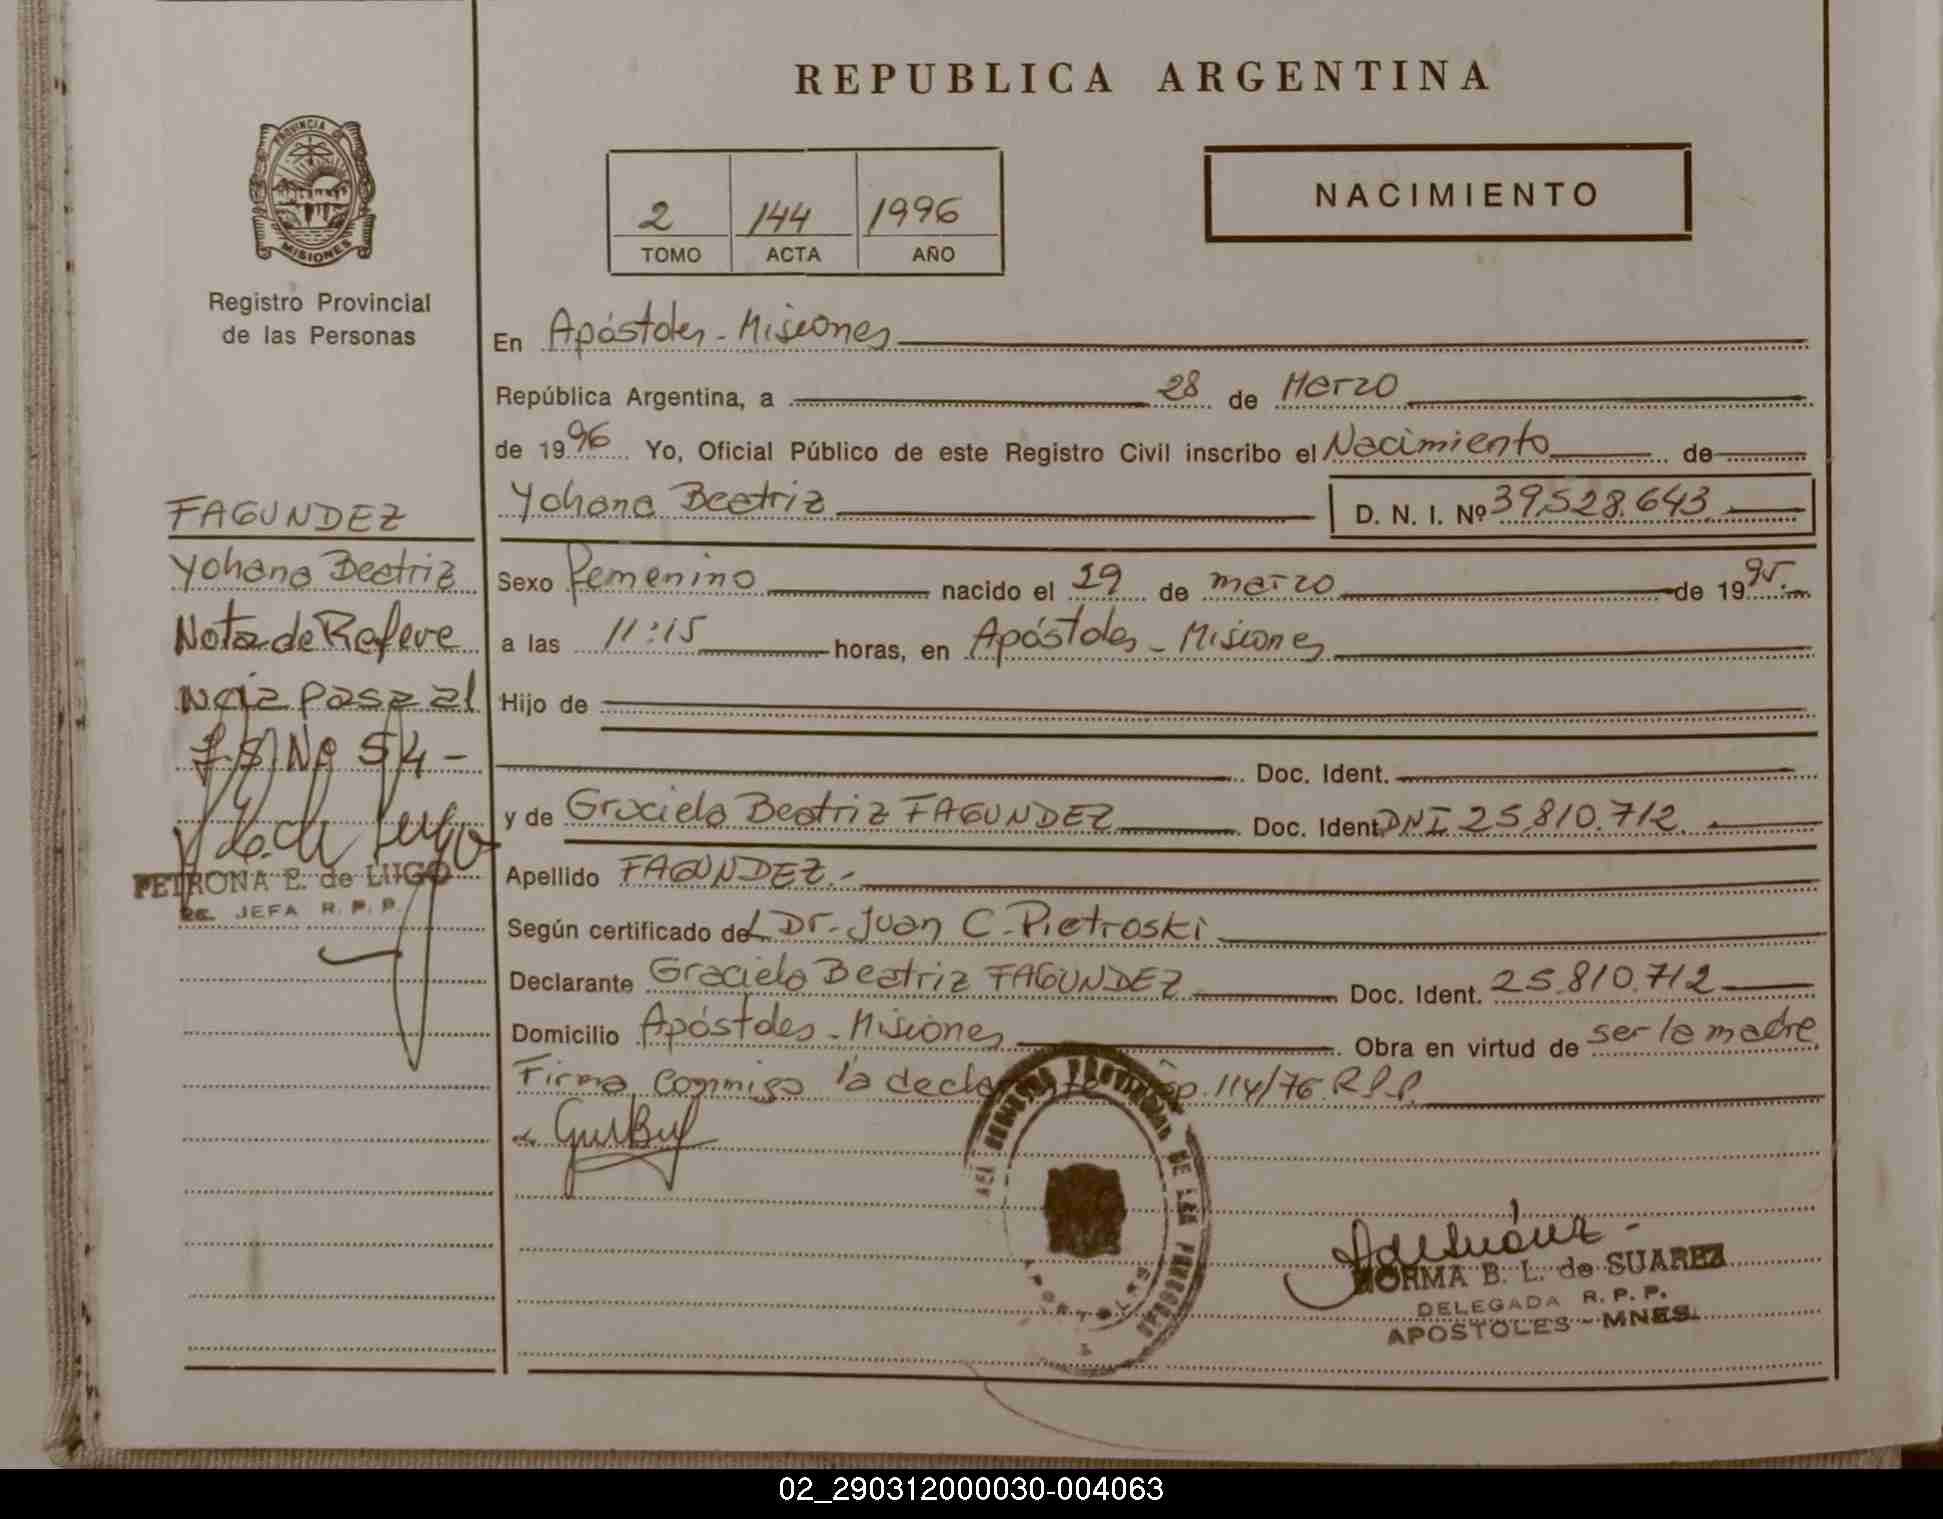 REPUBLICA ARGENTINA
PROVINCIA DE
MISIONES
Registro Provincial
de las Personas
2 144 1996
TOMO ACTA AÑO
NACIMIENTO
En Apóstoles - Misiones
República Argentina, a 28 de Marzo
de 1996 Yo, Oficial Público de este Registro Civil inscribo el Nacimiento de
Yohana Beatriz D. N. I. Nº 39.528.643
Sexo femenino nacido el 29 de marzo de 1995.
a las 11:15 horas, en Apóstoles - Misiones
Hijo de
Doc. Ident.
y de Graciela Beatriz FAGUNDEZ Doc. Ident. DNI 25.810.712
Apellido FAGUNDEZ.-
Según certificado del Dr. Juan C. Pietroski
Declarante Graciela Beatriz FAGUNDEZ Doc. Ident. 25.810.712
Domicilio Apóstoles - Misiones Obra en virtud de ser la madre
Firma conmigo la declarante 114/76 R.P.P.
FAGUNDEZ
Yohana Beatriz
Nota de Refe
pasa al
Nº 54 -
PETRONA E. de LUGO
JEFA R. P. P.
PROVINCIAL DE LAS PERSONAS
APOSTOLES
NORMA B. L. de SUAREZ
DELEGADA R. P. P.
APOSTOLES - MNES.
02_290312000030-004063